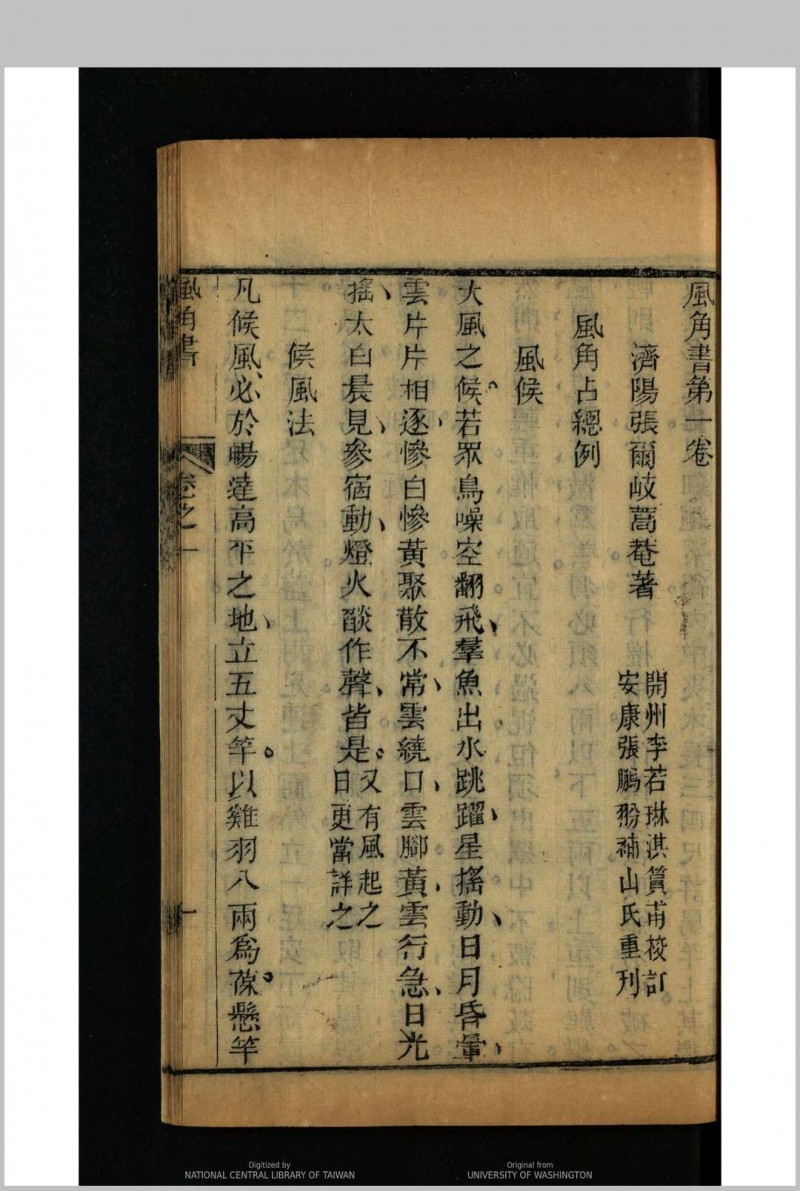 風角書第一卷
濟陽張爾岐蒿菴著
開州李若琳淇篔甫校訂
安康張鵬翂補山氏重刊
風角占總例
風候
大風之候。若眾鳥噪空翻飛、羣魚出水跳躍、星搖動、日月昏暈、
雲片片相逐、慘白慘黃聚散不常、雲繞口、雲腳黃、雲行急、日光
搖、太白晨見、參宿動、燈火燄作聲、皆是。又有風起之
日更當詳之
候風法
凡候風、必於暢達高平之地、立五丈竿。以雞羽八兩爲葆。懸竿
風角書
卷之一
一
Digitized by
NATIONAL CENTRAL LIBRARY OF TAIWAN
Original from
UNIVERSITY OF WASHINGTON